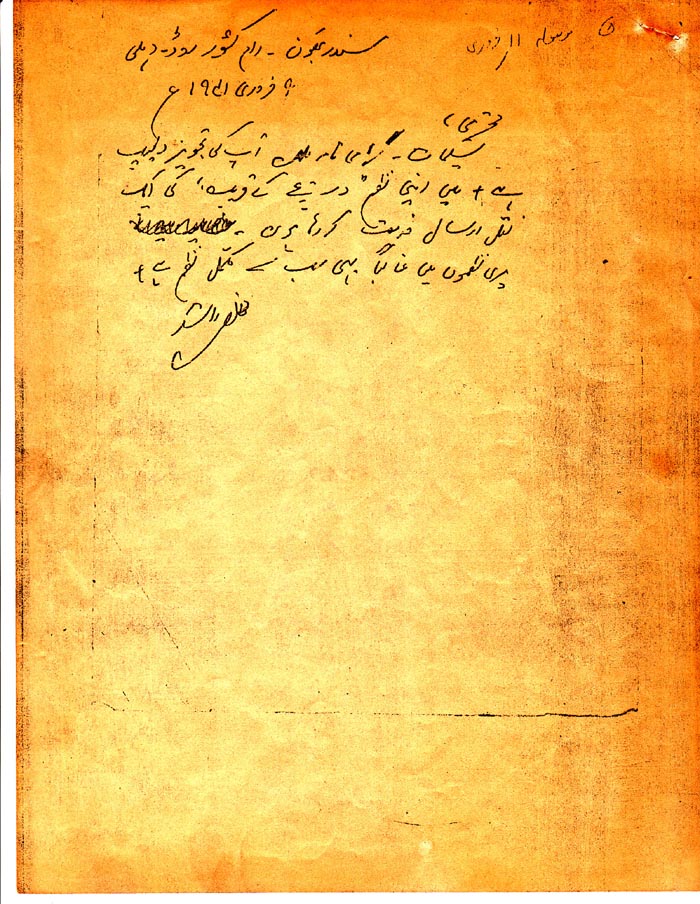 موصولہ ۱۱ فروری
سندر بھون - رام کشور روڈ - دہلی
۹ فروری ۱۹۴۱ ع
محترمی،
تسلیمات - گرامی نامہ ملا آپ کی تجویز دلچسپ
ہے + میں اپنی نظم "دریچے کے قریب" کی ایک
نقل ارسال خدمت کر رہا ہوں -
میری نظموں میں غالباً یہی سب سے مکمل نظم ہے +
مخلص راشد